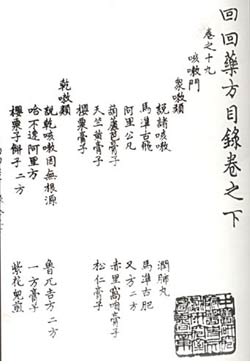 回回藥方目錄卷之下
卷之十九
咳嗽門
衆嗽類
說諸咳嗽 潤肺丸
馬準古飛 馬準古肥
阿里公凡 又方二方
葫蘆芭膏子 赤里蒿咱膏子
天竺黃膏子 松仁膏子
櫻粟子膏子
乾嗽類
說乾咳嗽因無根源 魯兀吉方二方
哈不達阿里方 一方膏子
櫻粟子餅子二方 紫花兒煎